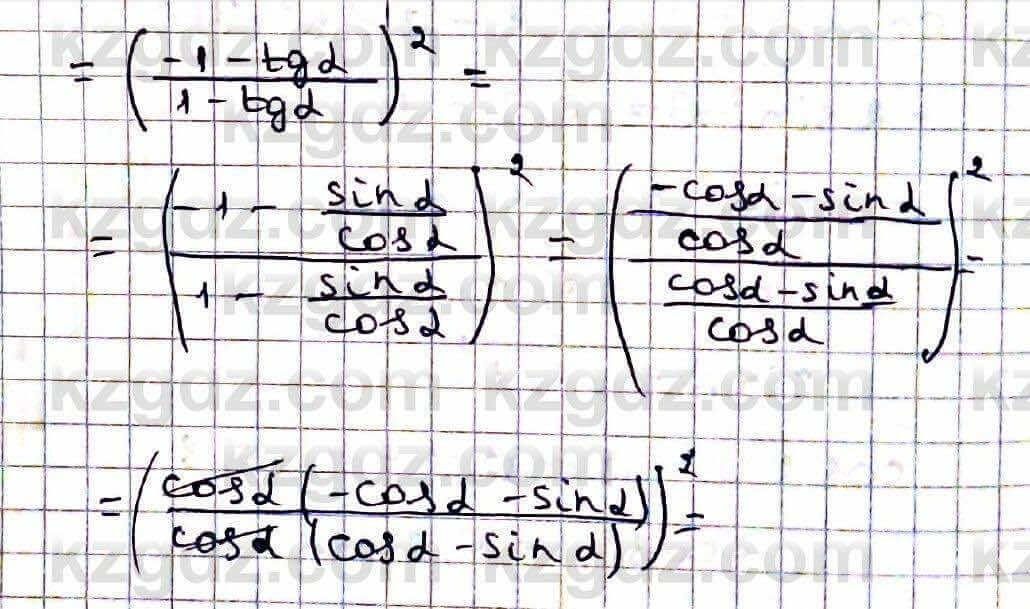 = ((-1 - tgα)/(1 - tgα))² =
= ((-1 - sinα/cosα)/(1 - sinα/cosα))² = (((-cosα - sinα)/cosα)/((cosα - sinα)/cosα))² =
= ((cosα(-cosα - sinα))/(cosα(cosα - sinα)))² =
kzgdz.com
kzgdz.com
kzgdz.com
kzgdz.com
kzgdz.com
kzgdz.com
kzgdz.com